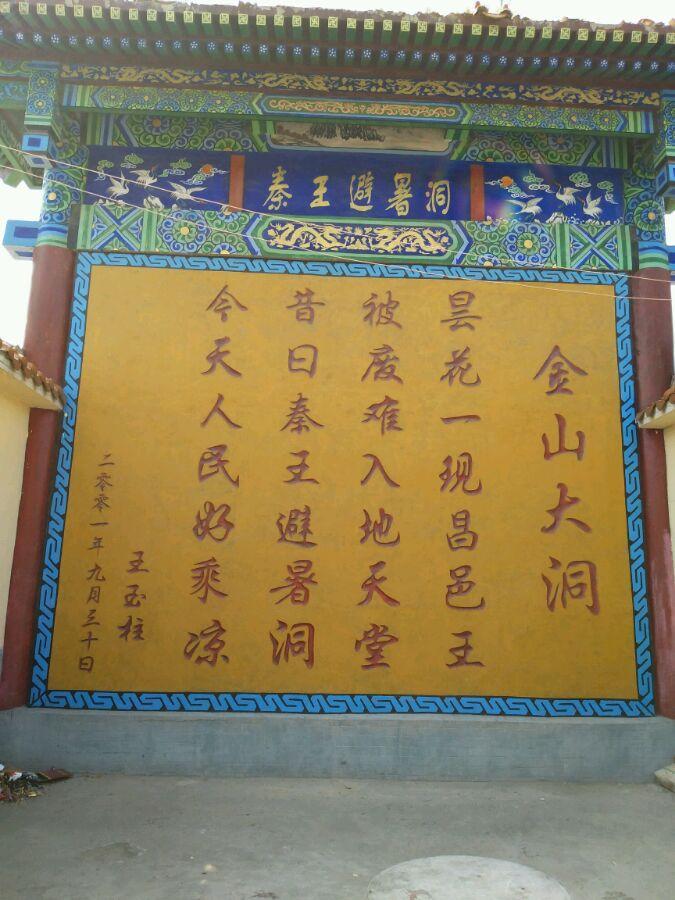 秦王避暑洞
金山大洞
昙花一现昌邑王
被废难入地天堂
昔日秦王避暑洞
今天人民好乘凉
王玉柱
二零零一年九月三十日